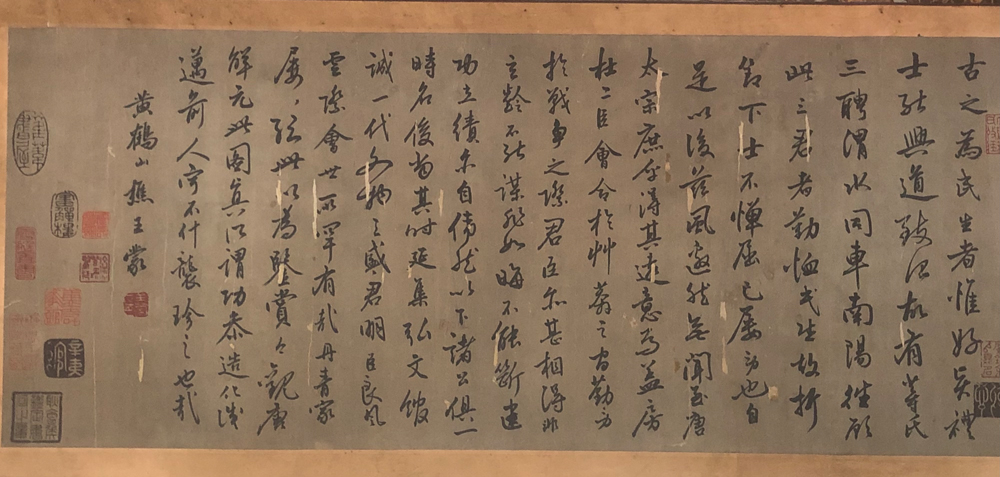 古之為民生者惟好吴禮
士能興道致治故有莘氏
三聘渭水同車南陽經顧
此三君者勤恤民生故折
節下士不憚屈己屢訪也自
是以後茲風邈然無聞至唐
太宗庶乎得其遠意焉盖房
杜二臣會合於艸莽之間勤勞
於戰爭之際君臣亦甚相得非
玄齡不能謀非如晦不能斷建
功立績亦自偉然以下諸公俱一
時名俊當其時延集弘文館
誠一代文物之盛君明臣良風
雲際會世所罕有哉丹青家
屢、臨此以為堅賞今觀唐
解元此圖真所謂功参造化識
邁前人寧不什襲珍之也哉
黄鶴山樵王蒙